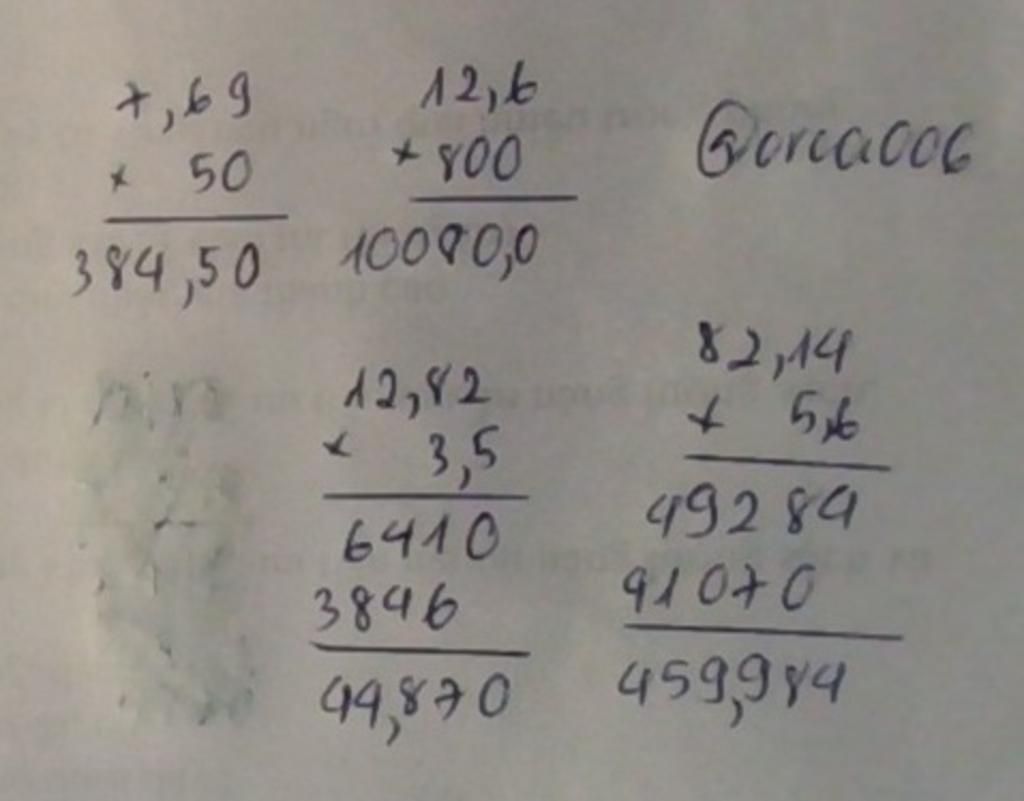 7,69
× 50
384,50
12,6
× 800
10080,0
@orca006
12,82
× 3,5
6410
3846
44,870
82,14
× 5,6
49284
41070
459,984